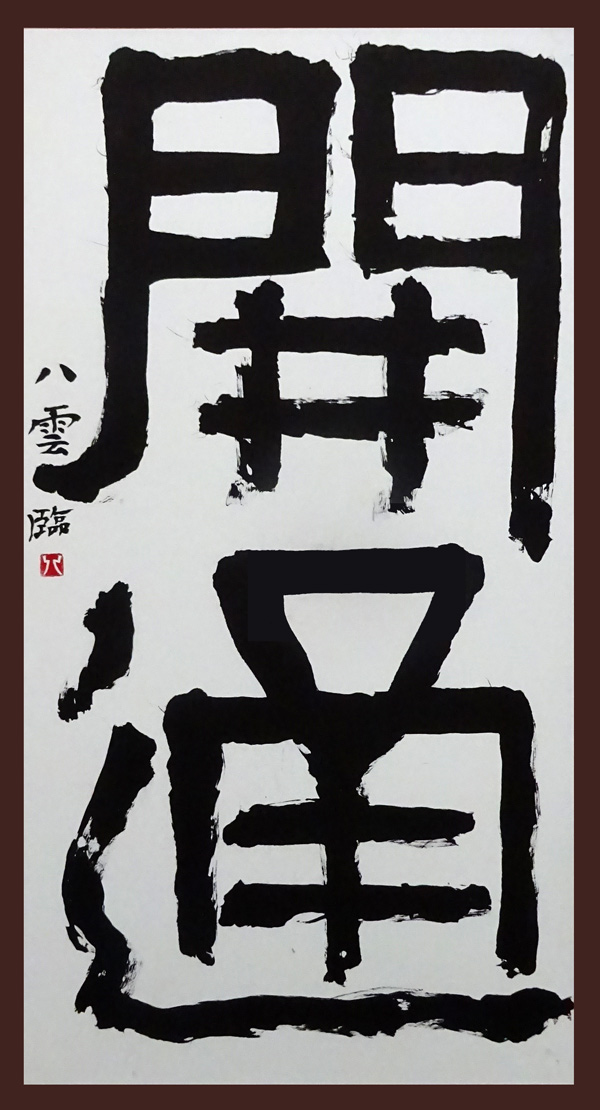 開通
八雲臨
八